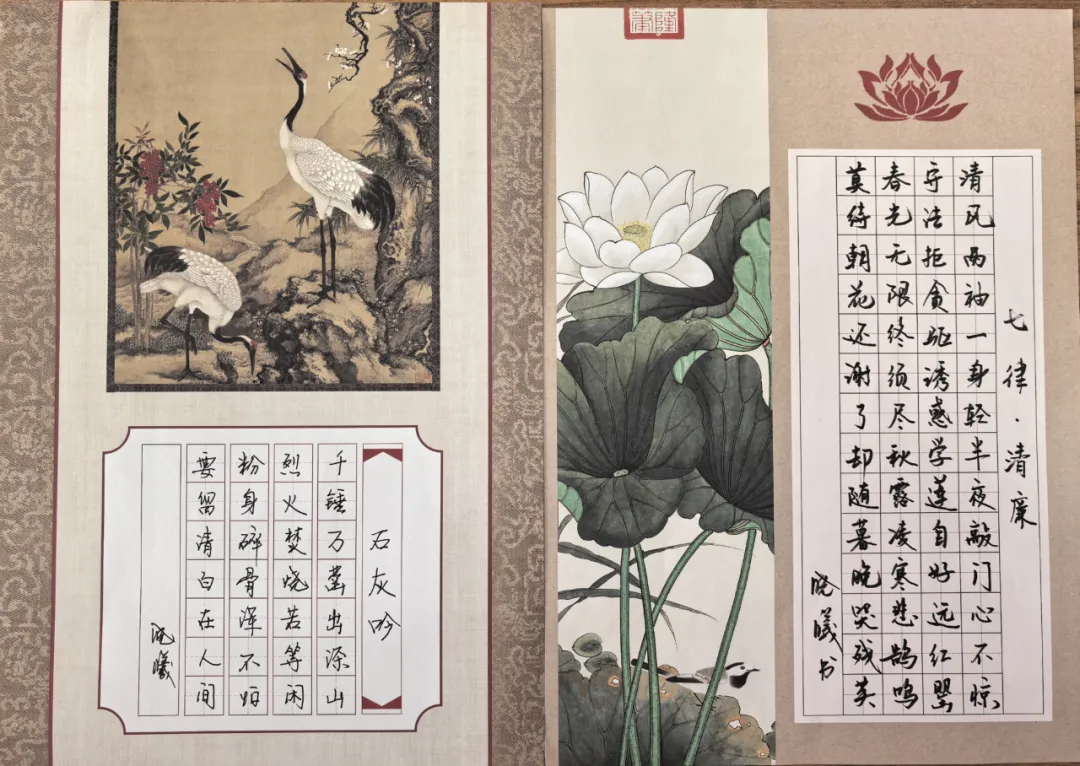 石灰吟
千锤万凿出深山
烈火焚烧若等闲
粉身碎骨浑不怕
要留清白在人间
晓曦
七律·清廉
清风两袖一身轻半夜敲门心不惊
守法拒贪驱诱惑学莲自好远红罂
春光无限终须尽秋露凌寒悲鹄鸣
莫待朝花还谢了却随暮晚哭残英
晓曦书